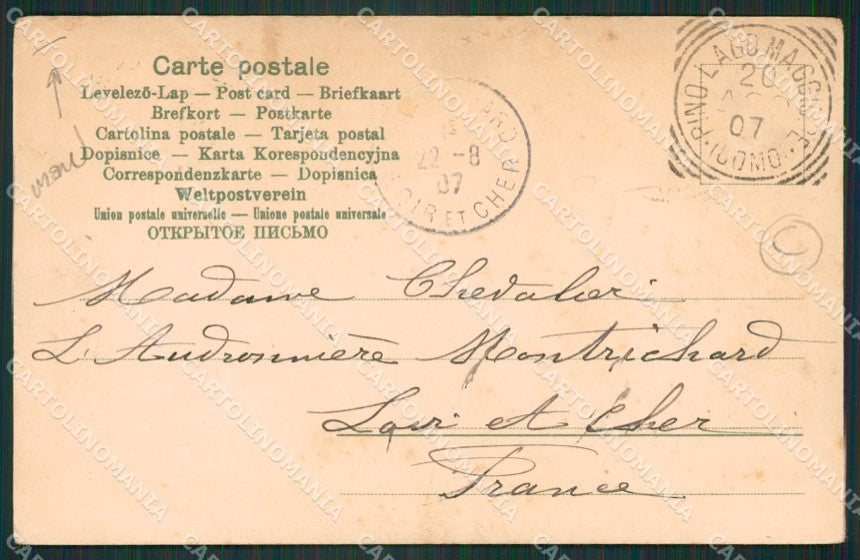 Carte postale
Levelező-Lap — Post card — Briefkaart
Brefkort — Postkarte
Cartolina postale — Tarjeta postal
Dopisnice — Karta Korespondencyjna
Correspondenzkarte — Dopisnica
Weltpostverein
Union postale universelle — Unione postale universale
ОТКРЫТОЕ ПИСЬМО
22 -8
07
LOIR ET CHER
PINO LAGO MAGGIORE
20
AGO
07
(COMO)
Madame Chevalier
L'Audronnière Montrichard
Loir et Cher
France
CARTOLINOMANIA